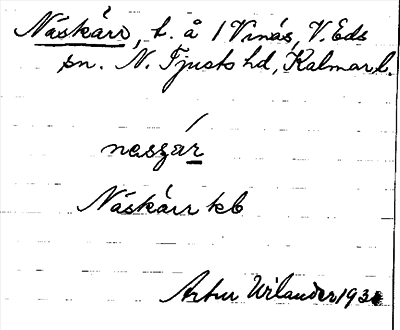 Näskärr, t. å 1 Vinäs, V. Eds
sn. N. Tjusts hd, Kalmar l.
Näskärr kb
Artur Wilander 193